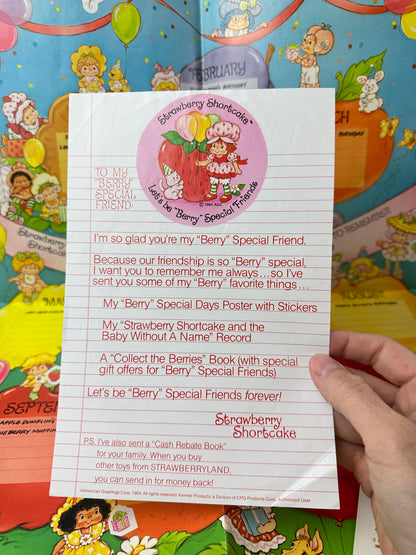 "FEBRUARY
Strawberry Shortcake™
© 1984 AGC
Let's be "Berry" Special Friends
TO MY
"BERRY"
SPECIAL
FRIEND:
I'm so glad you're my "Berry" Special Friend.
Because our friendship is so "Berry" special,
I want you to remember me always...so I've
sent you some of my "Berry" favorite things...
My "Berry" Special Days Poster with Stickers
My "Strawberry Shortcake and the
Baby Without A Name" Record
A "Collect the Berries" Book (with special
gift offers for "Berry" Special Friends)
Let's be "Berry" Special Friends forever!
Strawberry
Shortcake
P.S. I've also sent a "Cash Rebate Book"
for your family. When you buy
other toys from STRAWBERRYLAND,
you can send in for money back!
©American Greetings Corp. 1984. All rights reserved. Kenner Products, a Division of CPG Products Corp. Authorized User.
BIRTHDAY
TO REMEMBER
Strawberry
Shortcake
MA
AUGUST
SEPTE
APPLE DUMPLIN